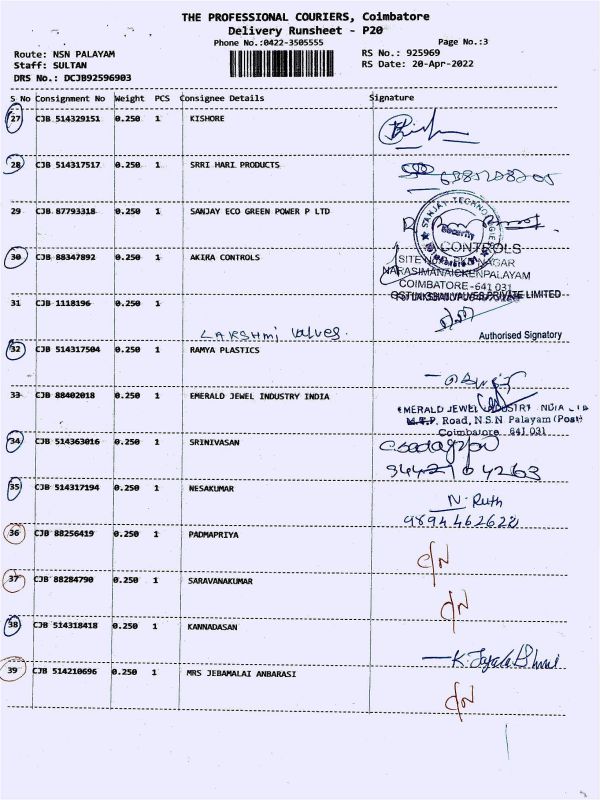 THE PROFESSIONAL COURIERS, Coimbatore
Delivery Runsheet - P20
Phone No.:0422-3505555
Page No.:3
Route: NSN PALAYAM
RS No.: 925969
Staff: SULTAN
RS Date: 20-Apr-2022
DRS No.: DCJB92596903
S No Consignment No Weight PCS Consignee Details Signature
27 CJB 514329151 0.250 1 KISHORE
28 CJB 514317517 0.250 1 SRRI HARI PRODUCTS
29 CJB 87793318 0.250 1 SANJAY ECO GREEN POWER P LTD
SANJAY TECHNOLOGIES
Security
30 CJB 88347892 0.250 1 AKIRA CONTROLS
CONTROLS
NARASIMANAICKENPALAYAM
COIMBATORE-641 031
31 CJB 1118196 0.250 1
LAKSHMI VALVES PRIVATE LIMITED
Lakshmi Valves
Authorised Signatory
32 CJB 514317504 0.250 1 RAMYA PLASTICS
33 CJB 88402018 0.250 1 EMERALD JEWEL INDUSTRY INDIA
EMERALD JEWEL INDUSTRY INDIA LTD
M.T.P. Road, N.S.N Palayam (Post)
Coimbatore 641 031
34 CJB 514363016 0.250 1 SRINIVASAN
35 CJB 514317194 0.250 1 NESAKUMAR
N. Ruth
9894462622
36 CJB 88256419 0.250 1 PADMAPRIYA
C/N
37 CJB 88284790 0.250 1 SARAVANAKUMAR
C/N
38 CJB 514318418 0.250 1 KANNADASAN
39 CJB 514210696 0.250 1 MRS JEBAMALAI ANBARASI
C/N